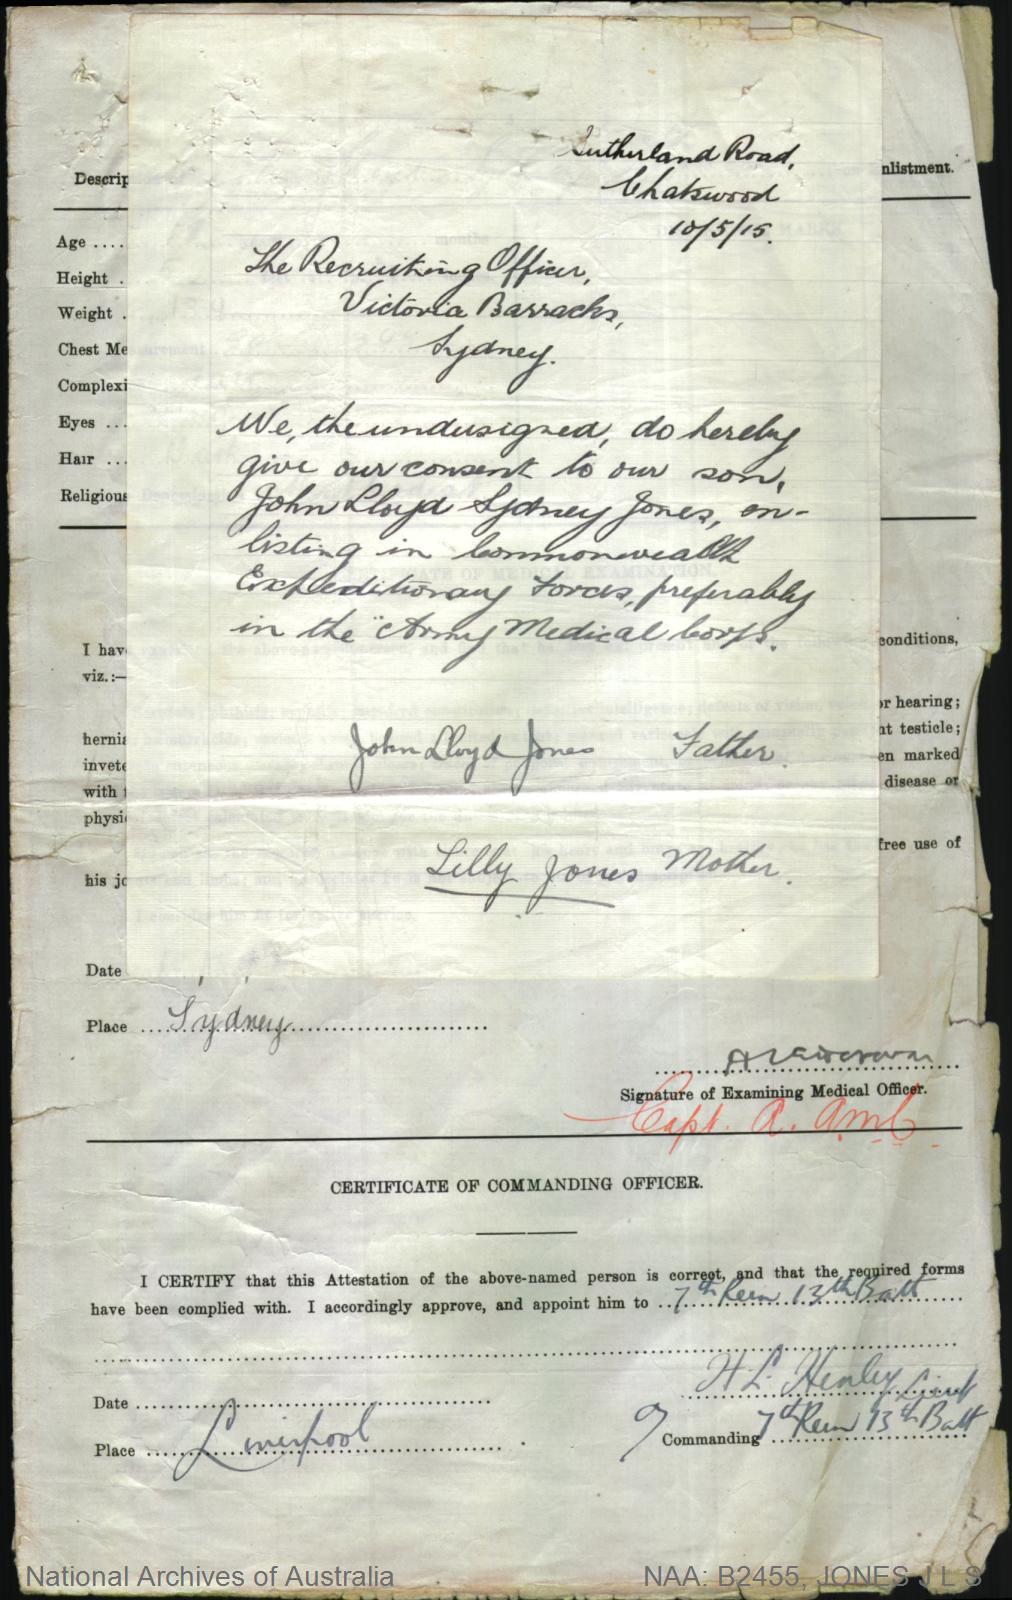 Sutherland Road,
Chatswood
10/5/15.
The Recruiting Officer,
Victoria Barracks,
Sydney.
We, the undersigned, do hereby
give our consent to our son,
John Lloyd Sydney Jones, en-
listing in Commonwealth
Expeditionary Forces, preferably
in the "Army Medical Corps.
John Lloyd Jones Father.
Lilly Jones Mother.
Descrip
nlistment.
Age ....
months
Height .
Weight .
Chest Me
Complexi
Eyes ...
Hair ...
Religious
OF MEDICAL EXAMINATION.
I hav
conditions,
viz.:—
or hearing;
hernia
nt testicle;
invete
en marked
with
disease or
physi
free use of
his jo
Date
Place ....Sydney
Signature of Examining Medical Officer.
Capt. A. A.M.C.
CERTIFICATE OF COMMANDING OFFICER.
I CERTIFY that this Attestation of the above-named person is correct, and that the required forms
have been complied with. I accordingly approve, and appoint him to 7th Rein 13th Batt
H.L. Henley Lieut
Date
Commanding 7th Rein 13th Batt
Place Liverpool
National Archives of Australia
NAA: B2455, JONES J L S